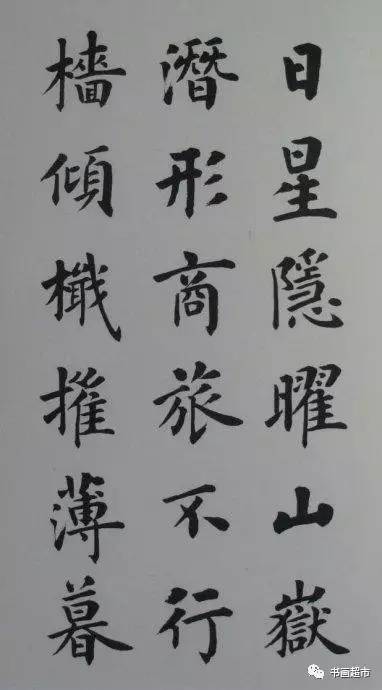 日星隱曜山嶽
潛形商旅不行
檣傾檝摧薄暮
书画超市